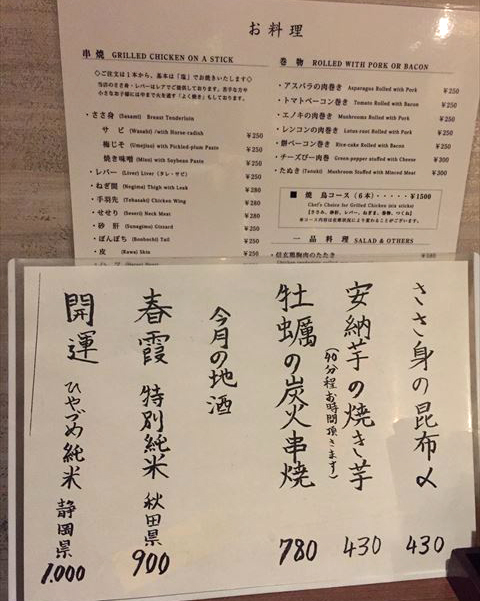 お料理
串焼 GRILLED CHICKEN ON A STICK
◇ご注文は1本から、基本は「塩」でお焼きいたします◇
当店のささ身・レバーはレアでご提供しております。苦手な方や
小さなお子様には中まで火を通す「よく焼き」もしております。
・ささ身 (Sasami) Breast Tenderloin
サビ (Wasabi) /with Horse-radish ¥250
梅じそ (Umejiso) with Pickled-plum Paste ¥250
焼き味噌 (Miso) with Soybean Paste ¥250
・レバー (Liver) Liver (タレ・ゼレ) ¥250
・ねぎ間 (Negima) Thigh with Leak ¥280
・手羽先 (Tebasaki) Chicken Wing ¥280
・せせり (Seseri) Neck Meat ¥280
・砂肝 (Sunagimo) Gizzard ¥250
・ぼんぼち (Bonbochi) Tail ¥250
・皮 (Kawa) Skin ¥250
巻物 ROLLED WITH PORK OR BACON
・アスパラの肉巻き Asparagus Rolled with Pork ¥250
・トマトベーコン巻き Tomato Rolled with Bacon ¥250
・エノキの肉巻き Mushrooms Rolled with Pork ¥250
・レンコンの肉巻き Lotus-root Rolled with Pork ¥250
・餅ベーコン巻き Rice-cake Rolled with Bacon ¥250
・チーズぴー肉巻 Green-pepper stuffed with Cheese ¥300
・たぬき (Tanuki) Mushroom Stuffed with Minced Meat ¥300
■ 焼鳥コース(6本)・・・・・¥1500
Chef's Choice for Grilled Chicken (six sticks)
【ささみ、砂肝、レバー、ねぎま、巻物、つくね】
※コース内容は在庫状況により変わることがございます。
一品料理 SALAD & OTHERS
・信玄鶏胸肉のたたき ¥580
ささ身の昆布〆 430
安納芋の焼き芋 430
(40分程お時間頂きます)
牡蠣の炭火串焼 780
今月の地酒
春霞 特別純米 秋田県 900
開運 ひやづめ純米 静岡県 1.000